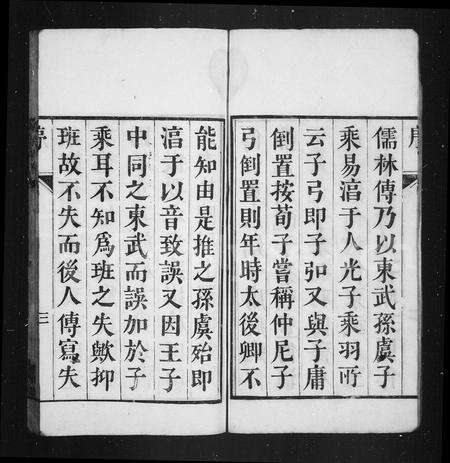 儒林傳乃以東武孫虞子
乘易湻于人光子乘羽所
云子弓即子弘又與子庸
倒置按荀子嘗稱仲尼子
弓倒置則年時太後卿不
能知由是推之孫虞殆即
湻于以音致誤又因王子
中同之東武而誤加於子
乘耳不知爲班之失歟抑
班故不失而後人傳寫失
三